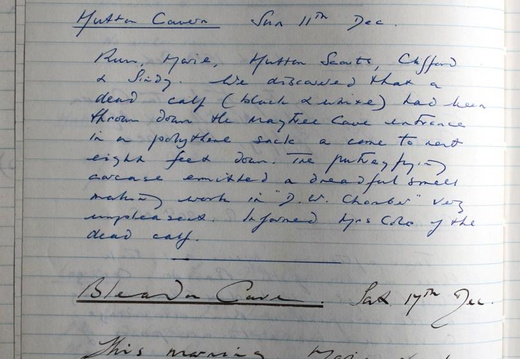 Hutton Cavern Sun 11th Dec.
Run, Marie, Hutton Scouts, Clifford
& Sindy. We discovered that a
dead calf (black & white) had been
thrown down the Maytree Cave entrance
in a polythene sack & come to rest
eight feet down. The putrefying
carcase emitted a dreadful smell
making work in "D.W. Chamber" very
unpleasant. Informed Mrs Cole of the
dead calf.
Bleadon Cave. Sat 17th Dec.
This morning